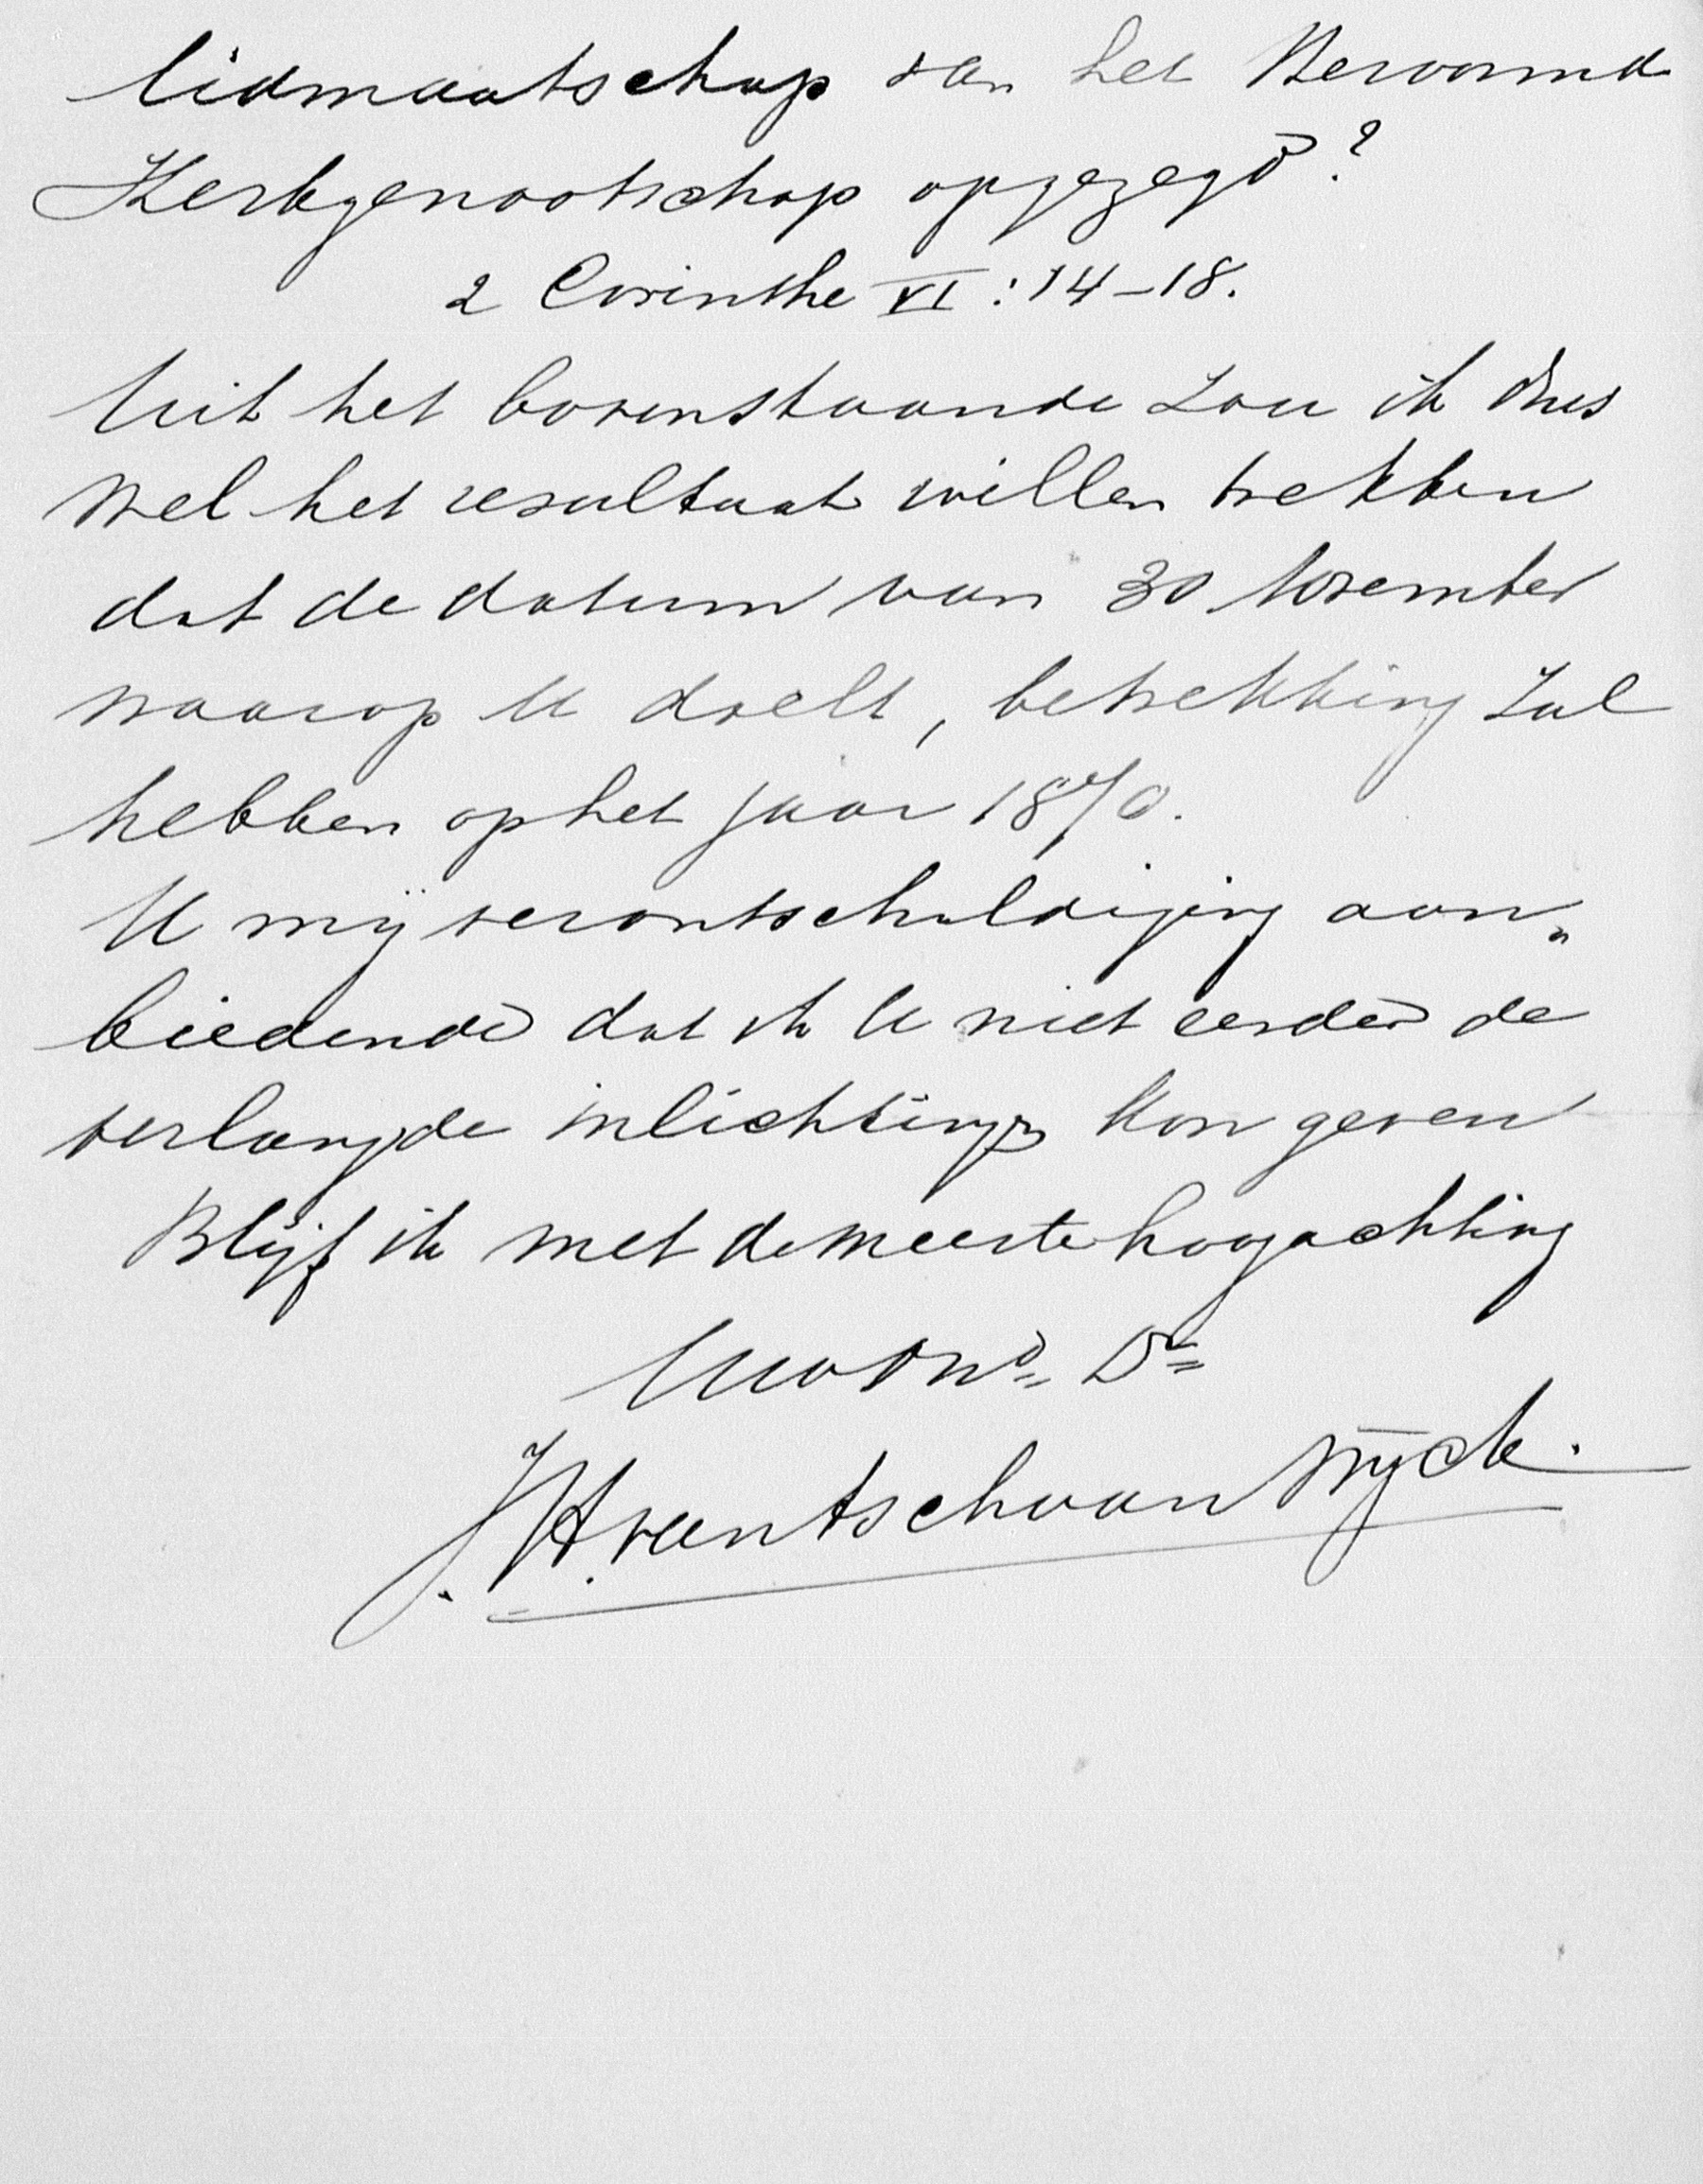 lidmaatschap van het Hervormd
Kerkgenootschap opgezegd?
2 Corinthe VI : 14-18.
Uit het bovenstaande zou ik dus
wel het resultaat willen trekken
dat de datum van 30 November
waarop U doelt, betrekking zal
hebben op het jaar 1870.
U mij verontschuldiging aan„
biedende dat ik U niet eerder de
verlangde inlichting kon geven
Blijf ik met de meeste hoogachting
Uw Dw Dr
J. H. van Schwan Wijck.